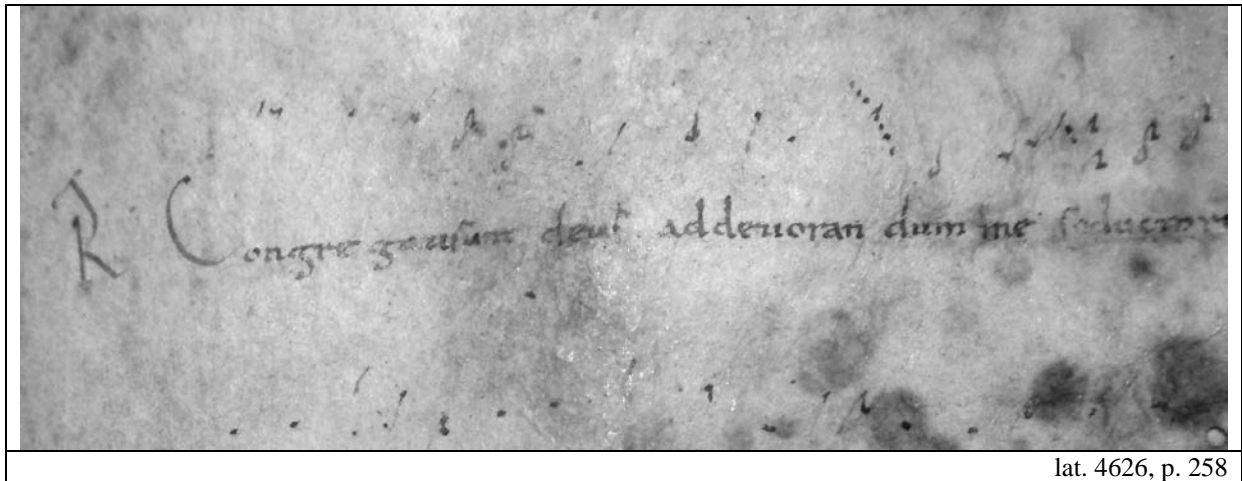 R Congre gati sunt deus ad deuoran dum me seductores
lat. 4626, p. 258